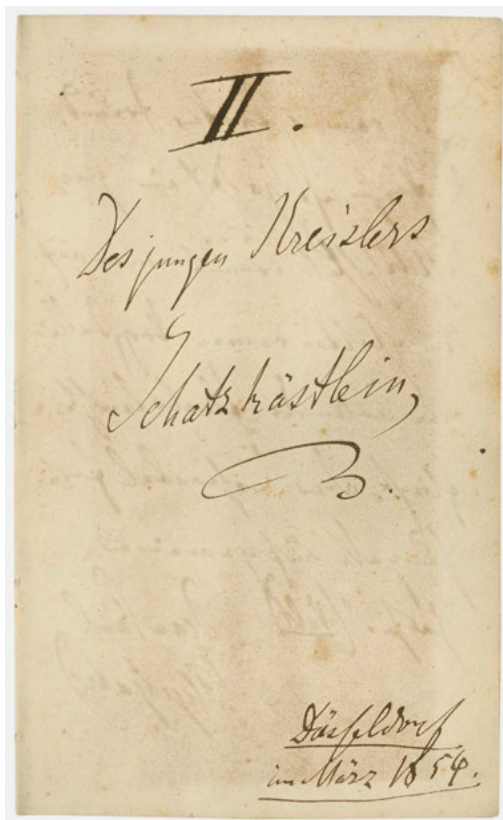 II.
Des jungen Kreislers
Schatzkästlein
Düsseldorf
im März 1854.